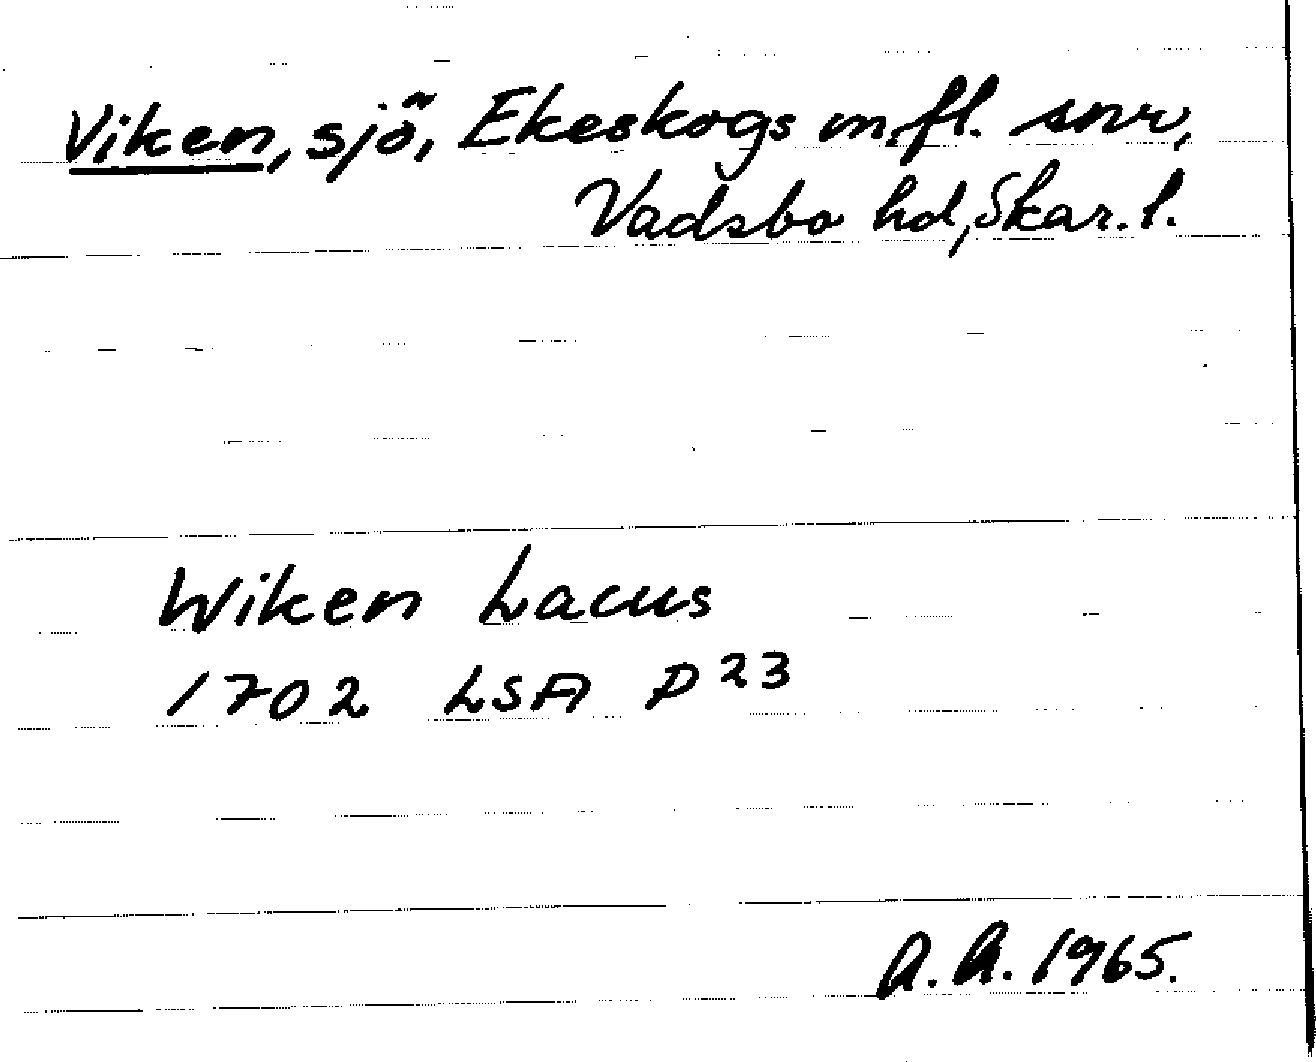 Viken, sjö, Ekeskogs m.fl. snr,
Vadsbo hd, Skar. l.
Wiken Lacus
1702 LSA P 23
A. A. 1965.